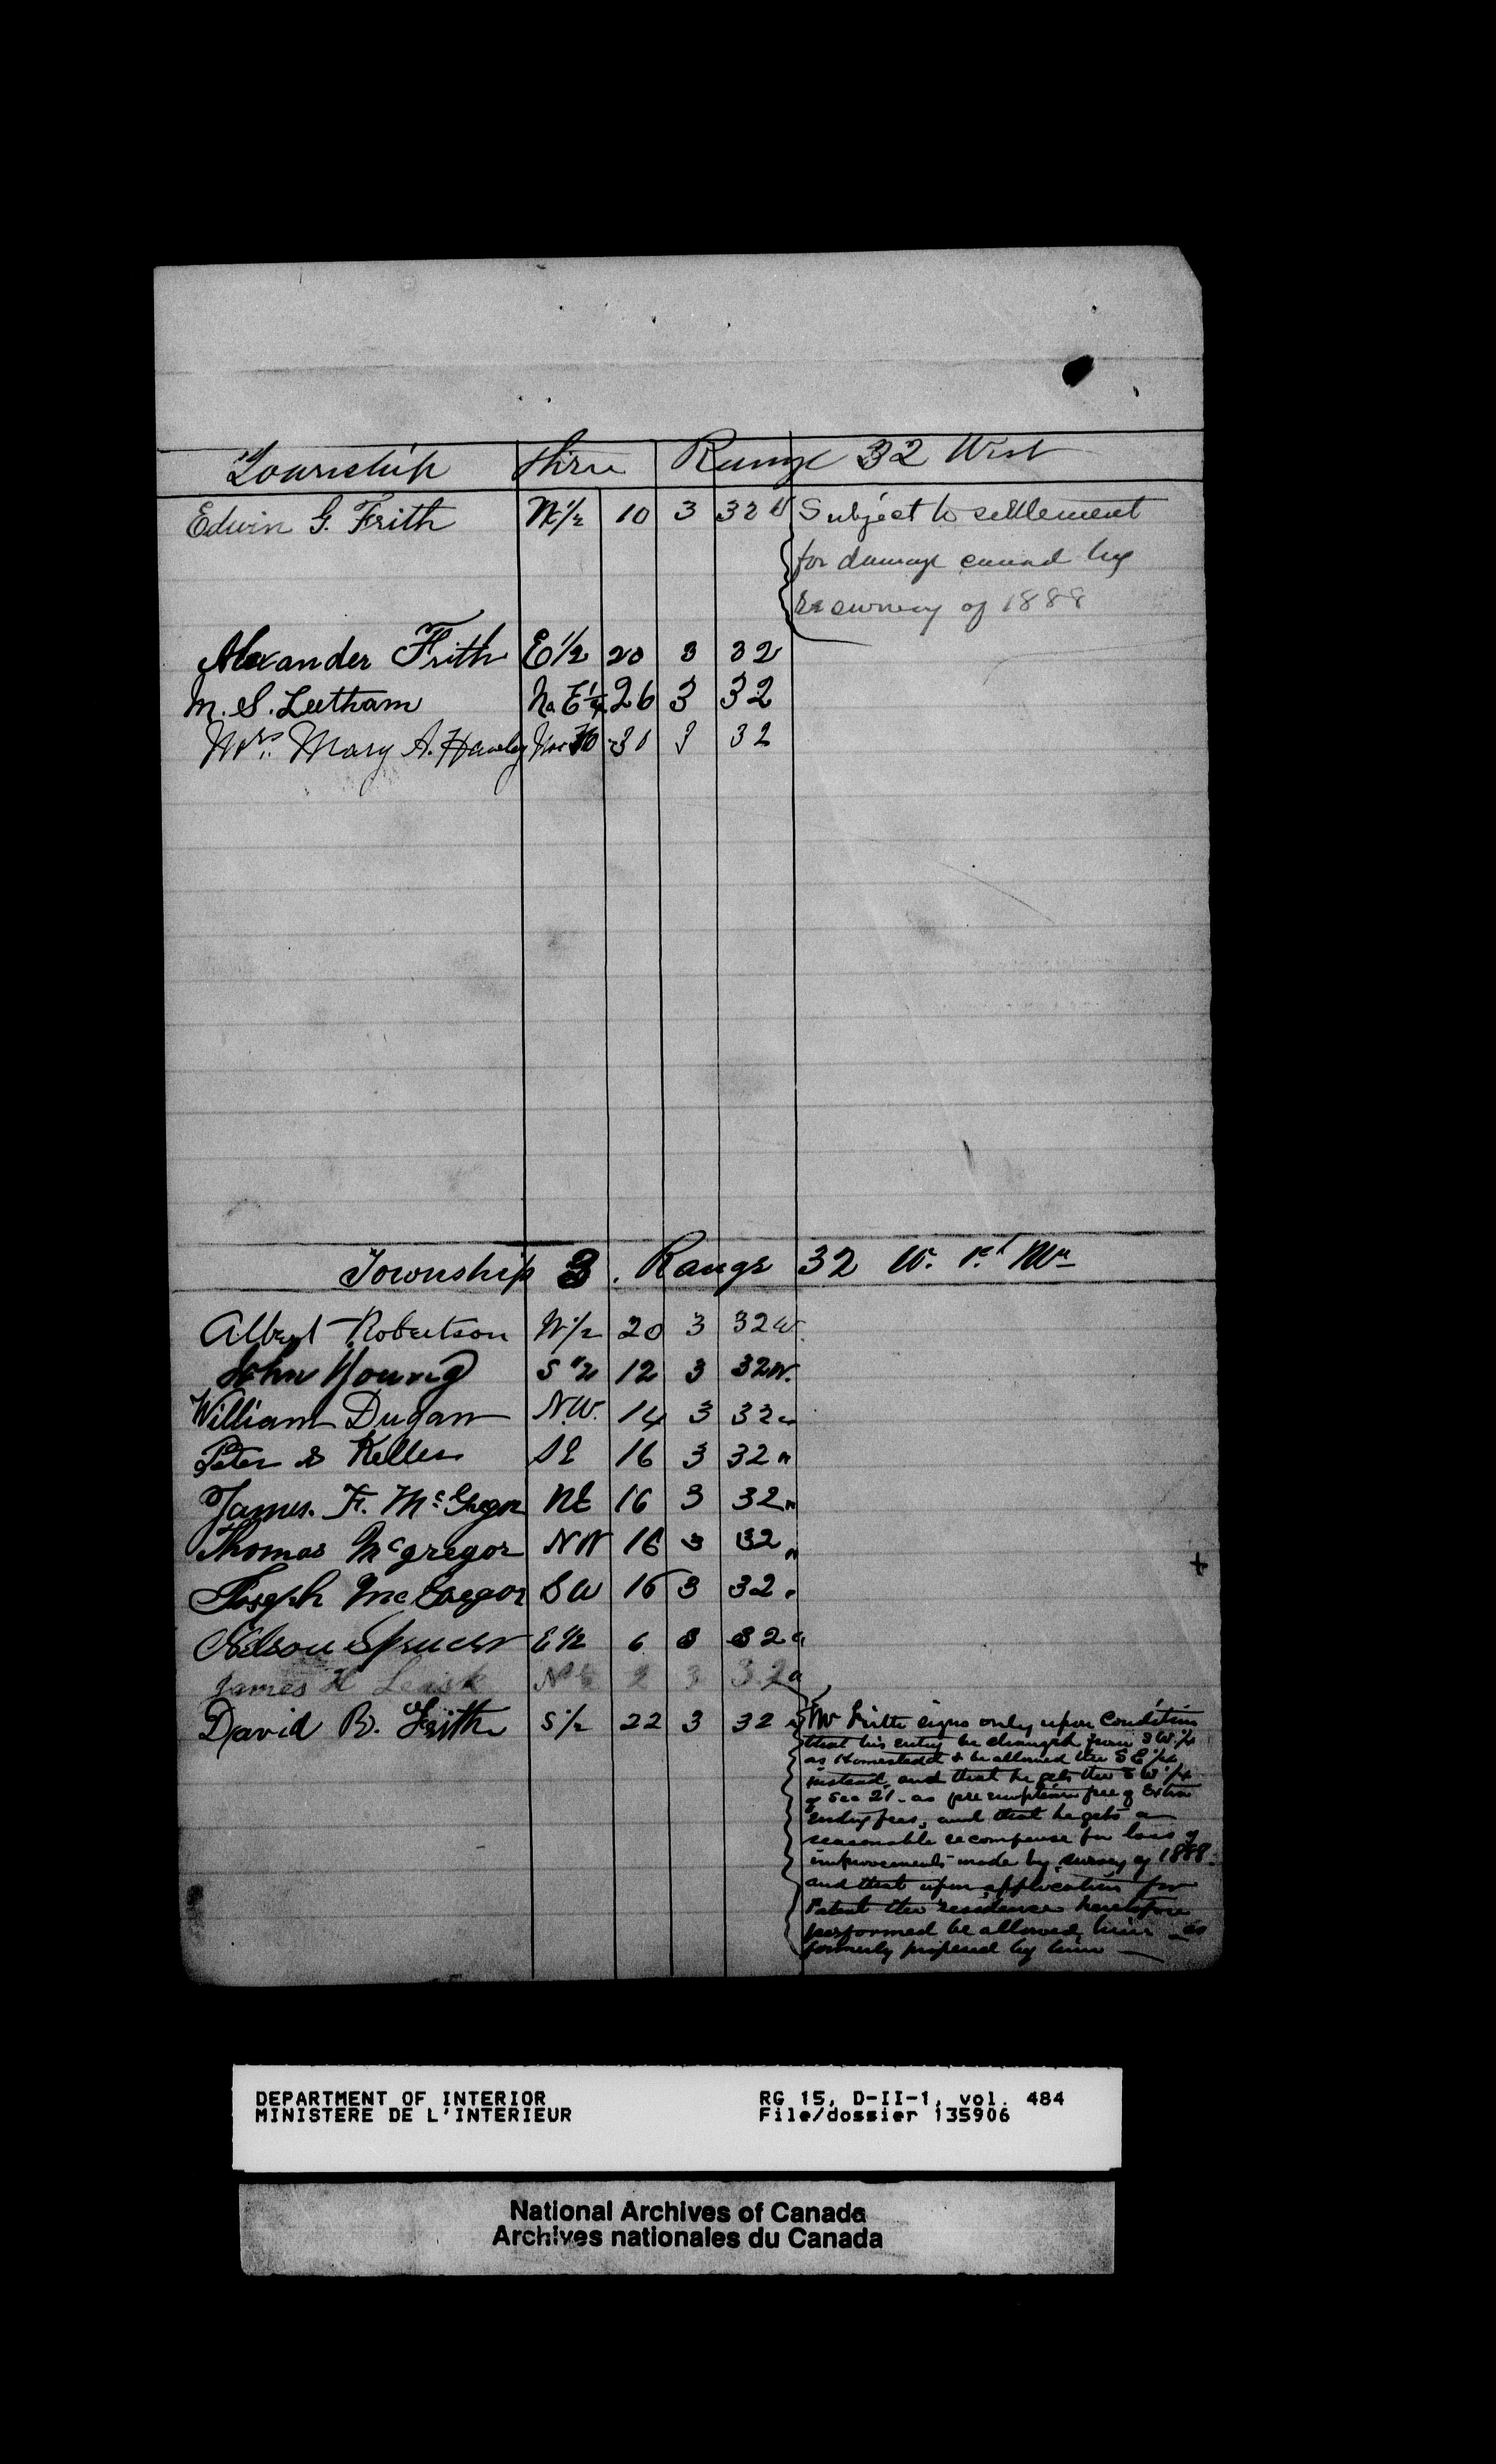 Township Three Range 32 West
Edwin G. Frith N 1/2 10 3 32 W Subject to settlement
for damage caused by
resurvey of 1888
Alexander Frith E 1/2 20 3 32
M. S. Leetham 26 3 32
Mrs. Mary A. 30 3 32
Township 3. Range 32 W. 1st Mn
Albert Robertson W 1/2 20 3 32 W.
John Young S 1/2 12 3 32 W.
William Dugan N.W. 14 3 32 "
Peter S Keller SE 16 3 32 "
James. F. McGregor NE 16 3 32 "
Thomas McGregor NW 16 3 32 "
Joseph McGregor SW 16 3 32 "
Nelson Spencer E 1/2 6 3 32 "
James H Leask 2 3 32 "
David B. Frith S 1/2 22 3 32 " Mr Frith signs only upon Condition
that his entry be changed from SW 1/4
as Homestead & be allowed the SE 1/4
instead, and that he gets the SW 1/4
of Sec 21 - as pre emption free of Extra
entry fees, and that he gets a
reasonable recompense for loss of
improvements made by survey of 1888.
and that upon application for
Patent the residence heretofore
performed be allowed him as
formerly by him
DEPARTMENT OF INTERIOR RG 15, D-II-1, vol. 484
MINISTERE DE L'INTERIEUR File/dossier 135906
National Archives of Canada
Archives nationales du Canada